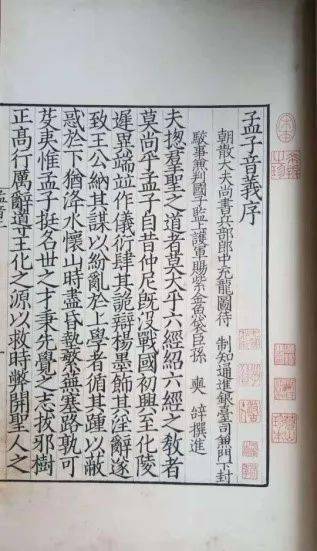 孟子音義序
朝散大夫尚書兵部郎中充龍圖待　制知通進銀臺司兼門下封
駮事兼判國子監上護軍賜紫金魚袋臣孫　奭　辥撰進
夫揔羣聖之道者莫大乎六經紹六經之教者
莫尚乎孟子自昔仲尼旣沒戰國初興至化陵
遲異端並作儀衍肆其詭辯楊墨飾其淫辭遂
致王公納其謀以紛亂於上學者循其踵以蔽
惑於下猶洚水懷山時盡昏墊繁蕪塞路孰可
芟夷惟孟子挺名世之才秉先覺之志拔邪樹
正高行厲辭導王化之源以救時弊開聖人之